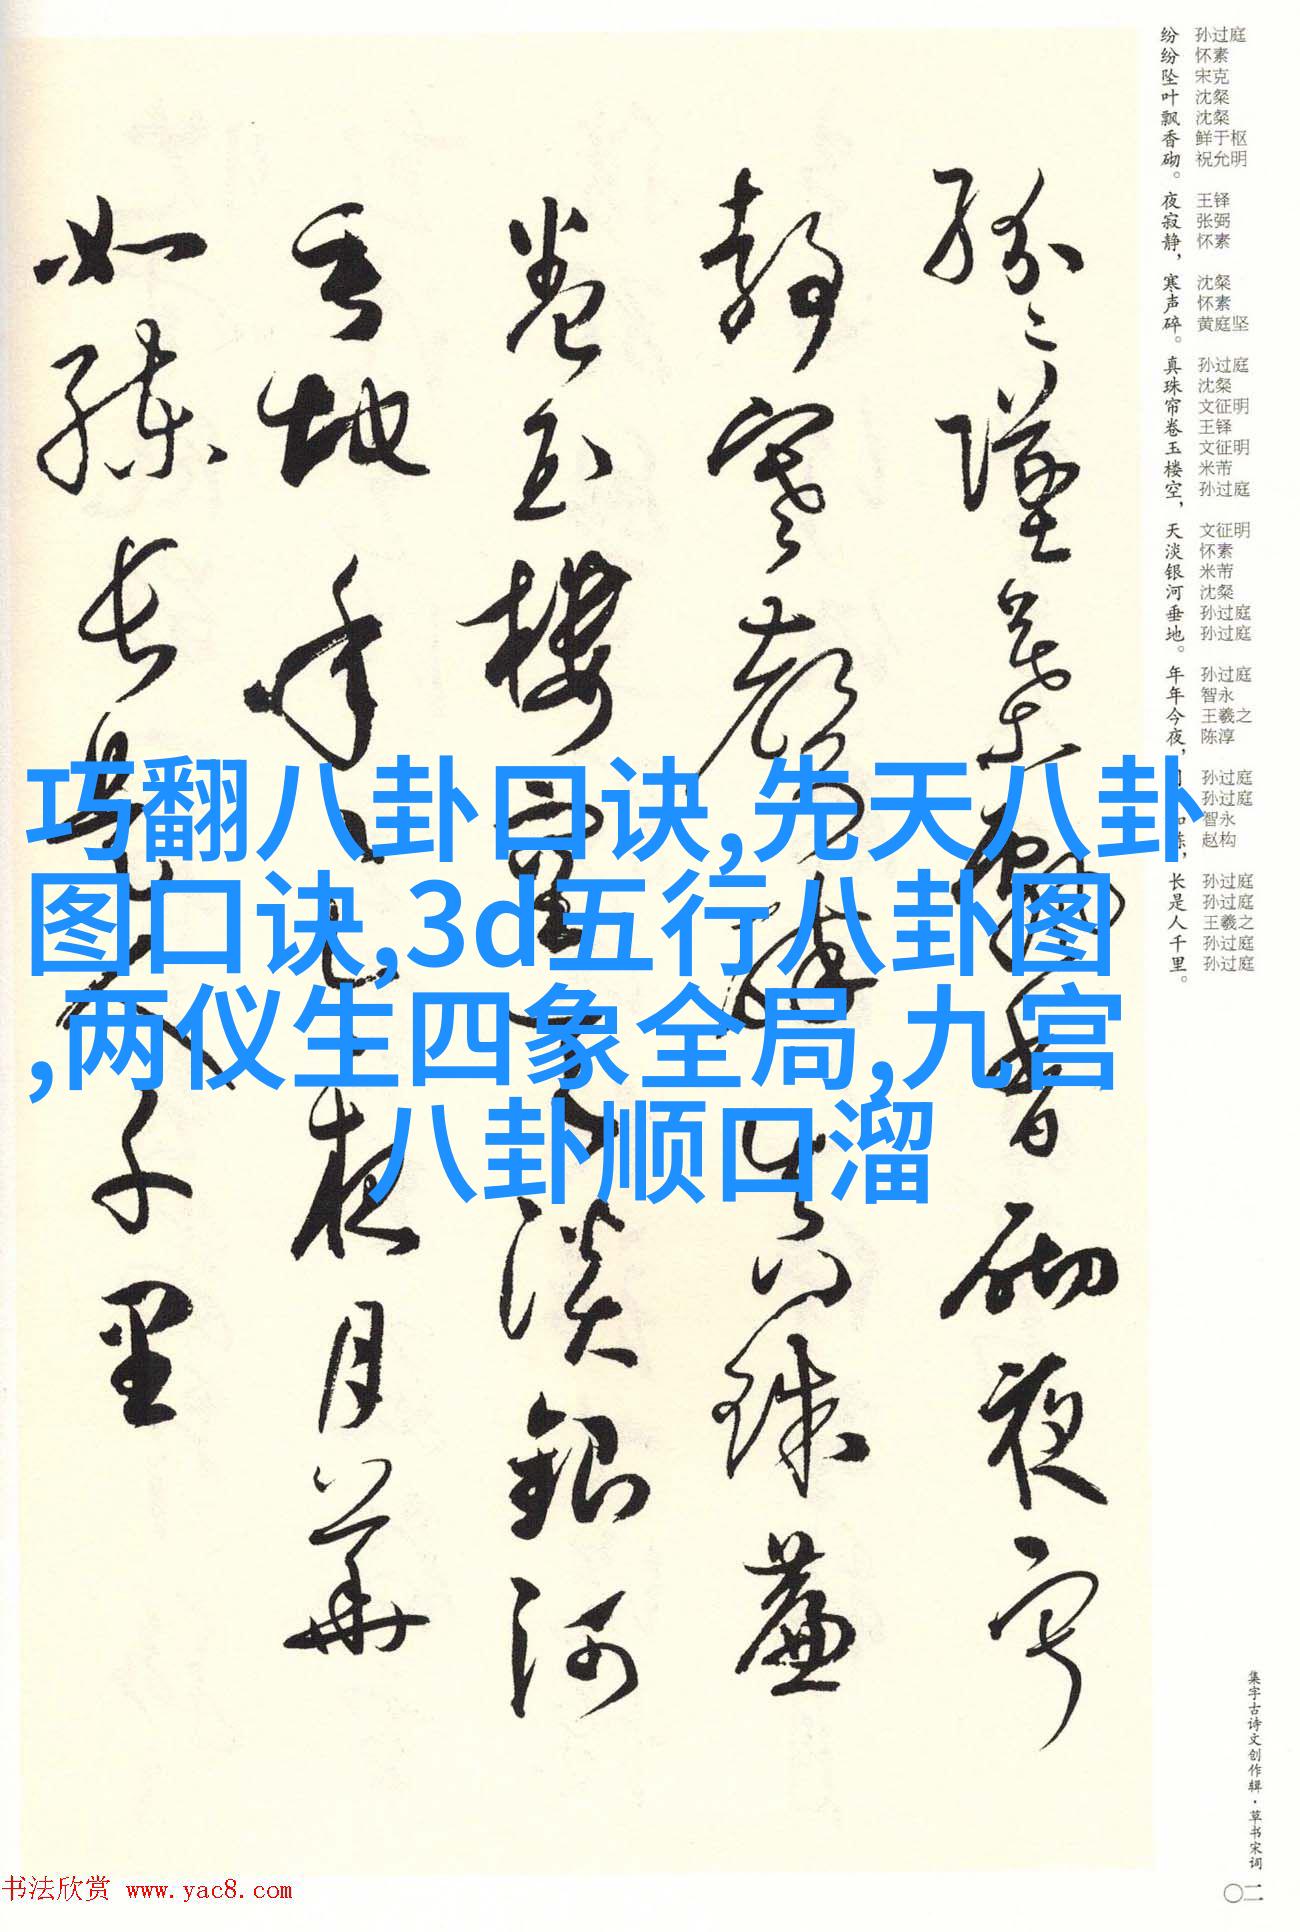 孙过庭 怀素 宋克 沈粲 沈粲 鲜于枢 祝允明 王铎 张弼 怀素 沈粲 怀素 黄庭坚 孙过庭 沈粲 文征明 王铎 文征明 米芾 孙过庭 文征明 怀素 米芾 沈粲 孙过庭 孙过庭 孙过庭 智永 王羲之 陈淳 孙过庭 孙过庭 智永 赵构 孙过庭 孙过庭 王羲之 孙过庭 孙过庭
纷纷坠叶飘香砌。夜寂静，寒声碎。真珠帘卷玉楼空，天淡银河垂地。年年今夜，长是人千里。
紛々墜葉飄香砌夜寂
静寒聲碎真珠簾
卷玉樓空天淡銀河
垂地年々今夜月華
如練長是人千里
巧翻八卦口诀,先天八卦
图口诀,3d五行八卦图
,两仪生四象全局,九宫
八卦顺口溜
集字古诗文创作辑·草书宋词
〇二
书法欣赏 www.yac8.com